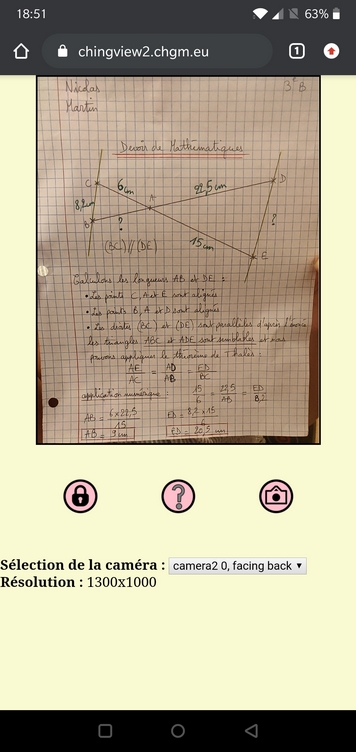 18:51
63%
chingview2.chgm.eu
1
Nicolas
3e B
Martin
Devoir de Mathématiques
C
6cm
A
22,5cm
D
8,2cm
B
?
?
15cm
E
(BC)//(DE)
Calculons les longueurs AB et DE :
• Les points C, A et E sont alignés
• Les points B, A et D sont alignés
• Les droites (BC) et (DE) sont parallèles d'après l'énoncé
les triangles ABC et ADE sont semblables et nous
pouvons appliquer le théorème de Thalès :
AE/AC = AD/AB = ED/BC
application numérique : 15/6 = 22,5/AB = ED/8,2
AB = 6×22,5/15 ED = 8,2×15/6
AB = 9cm ED = 20,5 cm
?
Sélection de la caméra : camera2 0, facing back
Résolution : 1300x1000